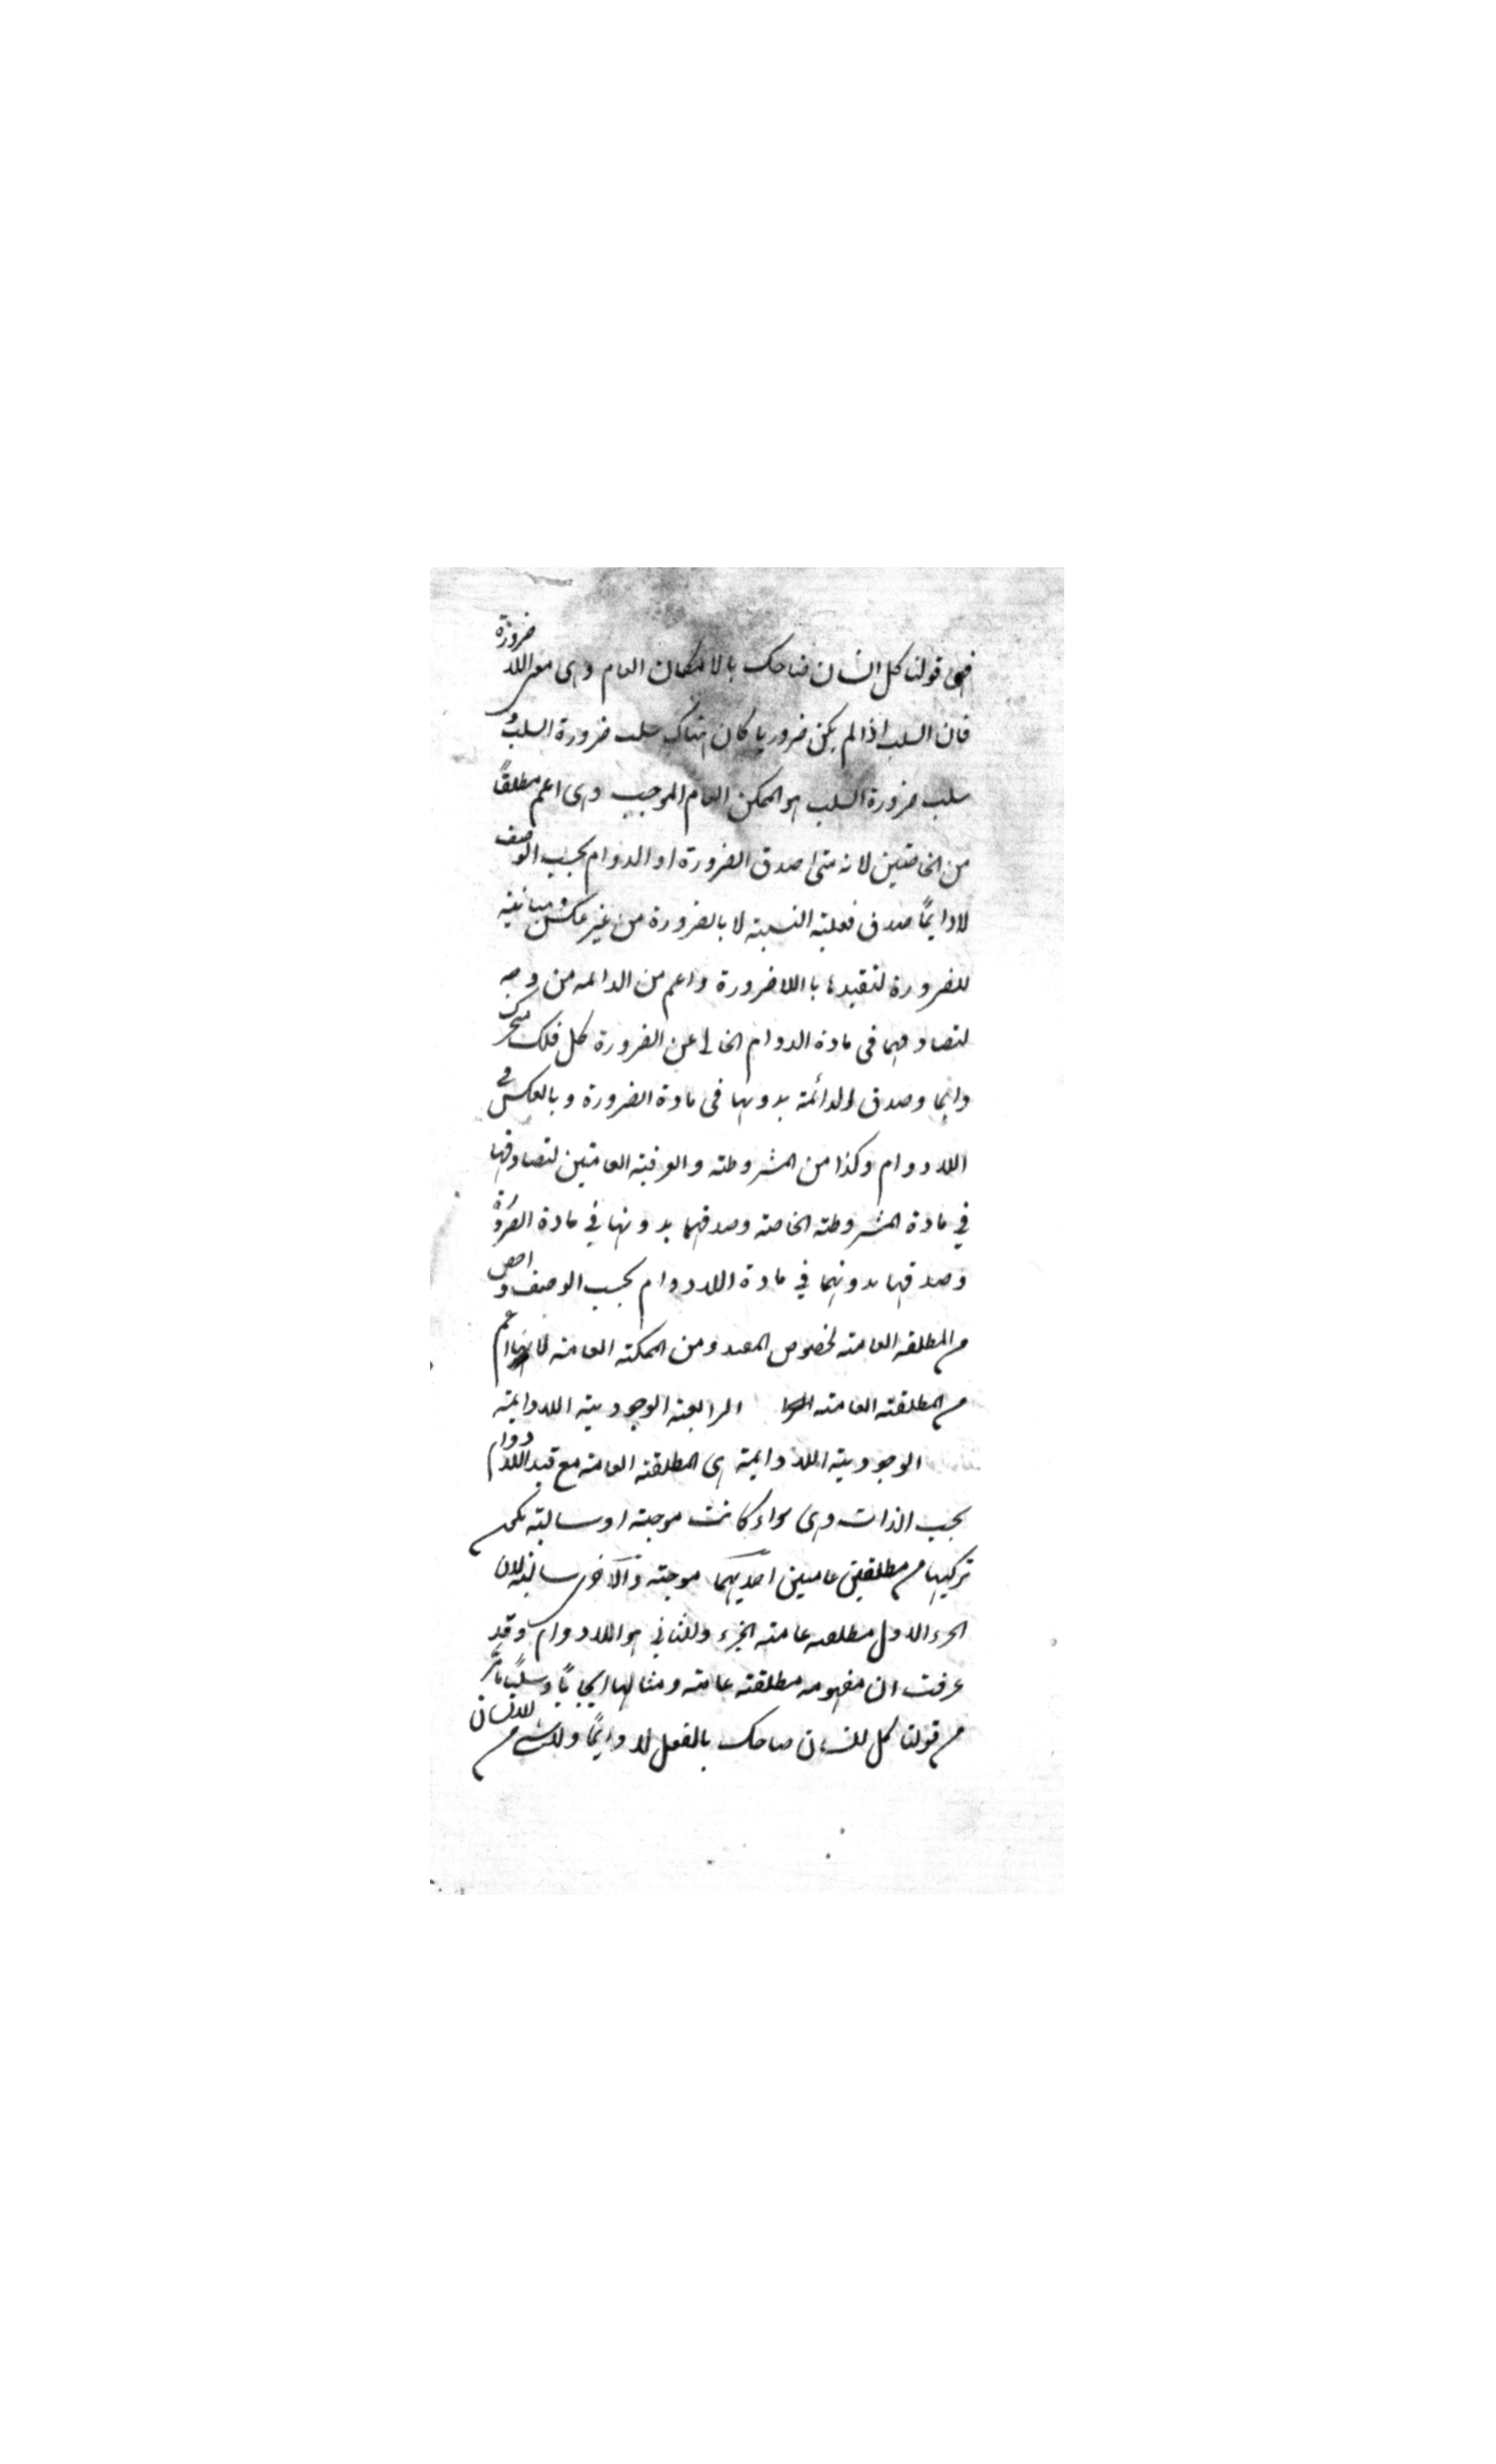 فهى قولنا كل انسان ضاحك بالامكان العام وهى معنى اللاضرورة
فان السلب اذا لم يكن ضروريا كان هناك سلب ضرورة السلب و
سلب ضرورة السلب هو الممكن العام الموجب وهى اعم مطلقًا
من الخاصتين لانه متى صدق الضرورة او الدوام بحسب الوصف
لا دايمًا صدق فعلية النسبة لا بالضرورة من غير عكس ومباينة
للضرورة لتقيدها باللاضرورة واعم من الدائمه من وجه
لتصادقهما فى مادة الدوام الخالى عن الضرورة كل فلك متحرك
دايما وصدق الدائمة بدونها فى مادة الضرورة وبالعكس فى
اللادوام وكذا من المشروطة والعرفية العامتين لتصادقها
في مادة المشروطة الخاصة وصدقهما بدونها في مادة الضرورة
وصدقها بدونهما في مادة اللادوام بحسب الوصف و اخص
من المطلقه العامة لخصوص المقيد ومن الممكنة العامة لانها اعم
من المطلقة العامة الرابعة الوجودية اللادايمة
الوجودية اللادايمة هى المطلقة العامة مع قيد اللادوام
بحسب الذات وهى سواء كانت موجبة او سالبة يكون
تركيبها من مطلقتين عامتين احديهما موجبة والآخرى سالبة لان
الجزء الاول مطلقه عامة الجزء والثانى هو اللادوام وقد
عرفت ان مفهومه مطلقة عامة ومثالها ايجابًا وسلبًا ما مر
من قولنا كل انسان ضاحك بالفعل لا دايمًا ولا شىء من الانسان